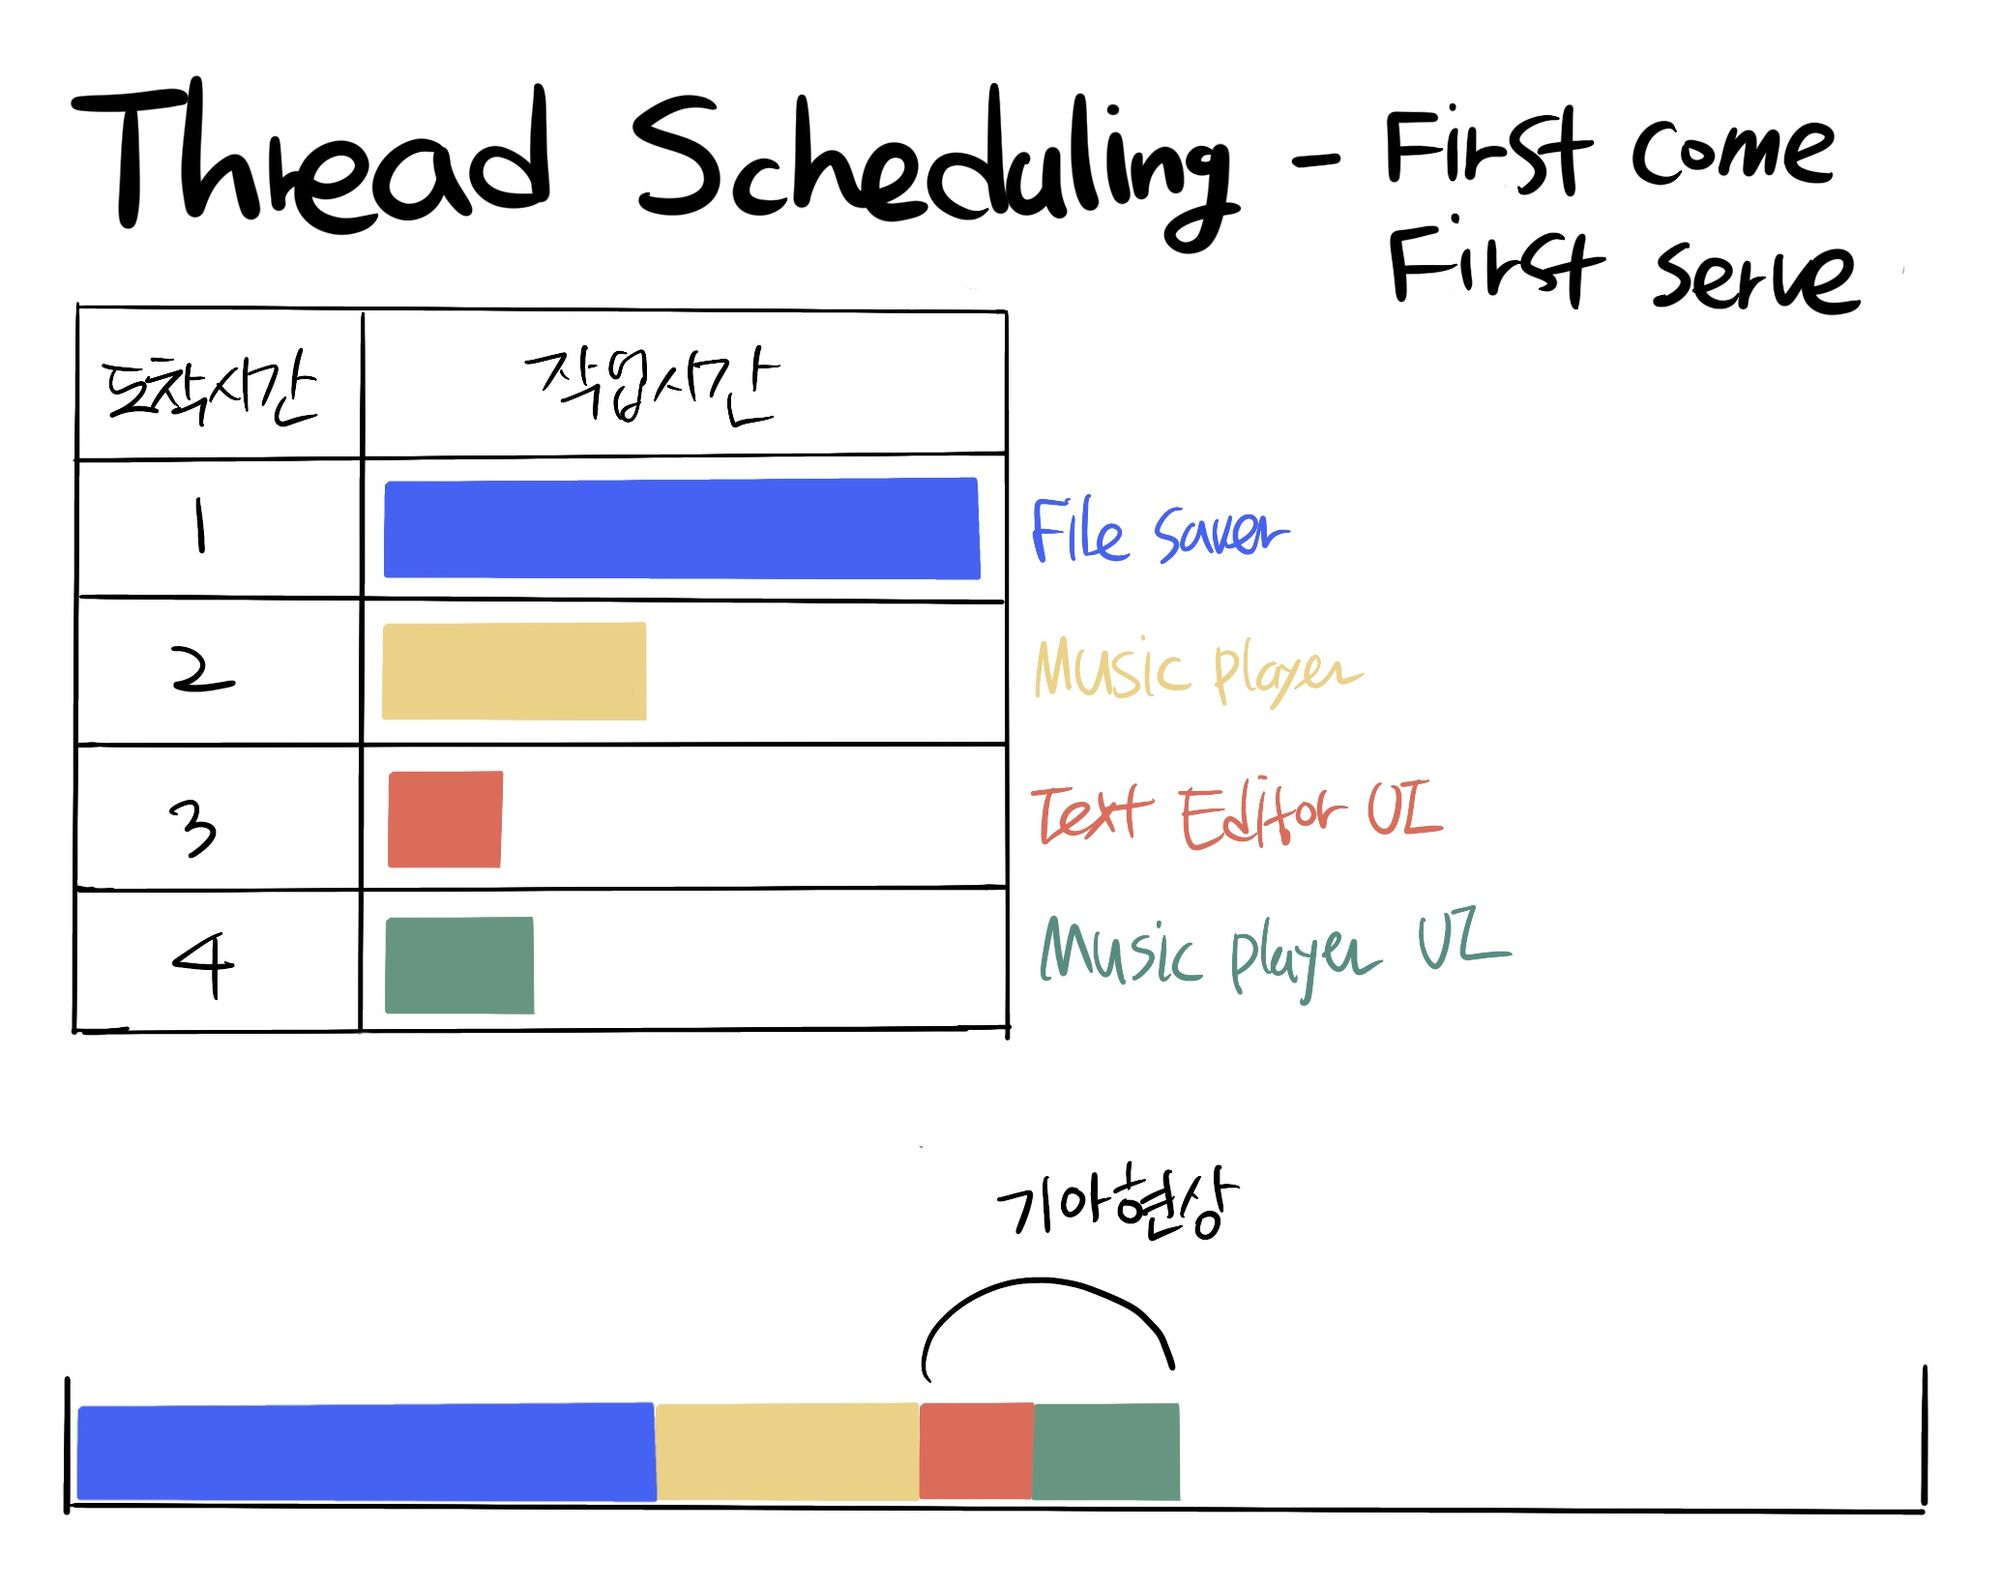 Thread Scheduling - First come
First serve
도착시간 작업시간
1 File saver
2 Music player
3 Text Editor UI
4 Music player UI
기아현상